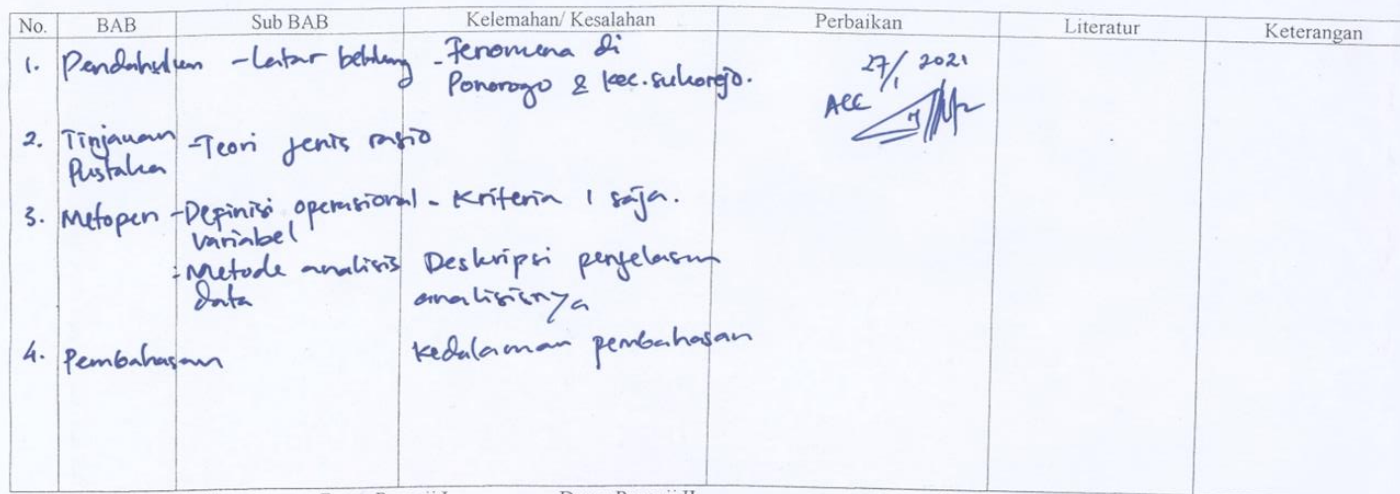 No. BAB Sub BAB Kelemahan/ Kesalahan Perbaikan Literatur Keterangan
1. Pendahuluan - Latar belakang - Fenomena di
Ponorogo & kec. sukorejo.
27/1 2021
ACC
2. Tinjauan - Teori jenis rasio
Pustaka
3. Metopen - Definisi operasional - Kriteria 1 saja.
variabel
- Metode analisis Deskripsi penjelasan
data analisisnya
4. Pembahasan kedalaman pembahasan